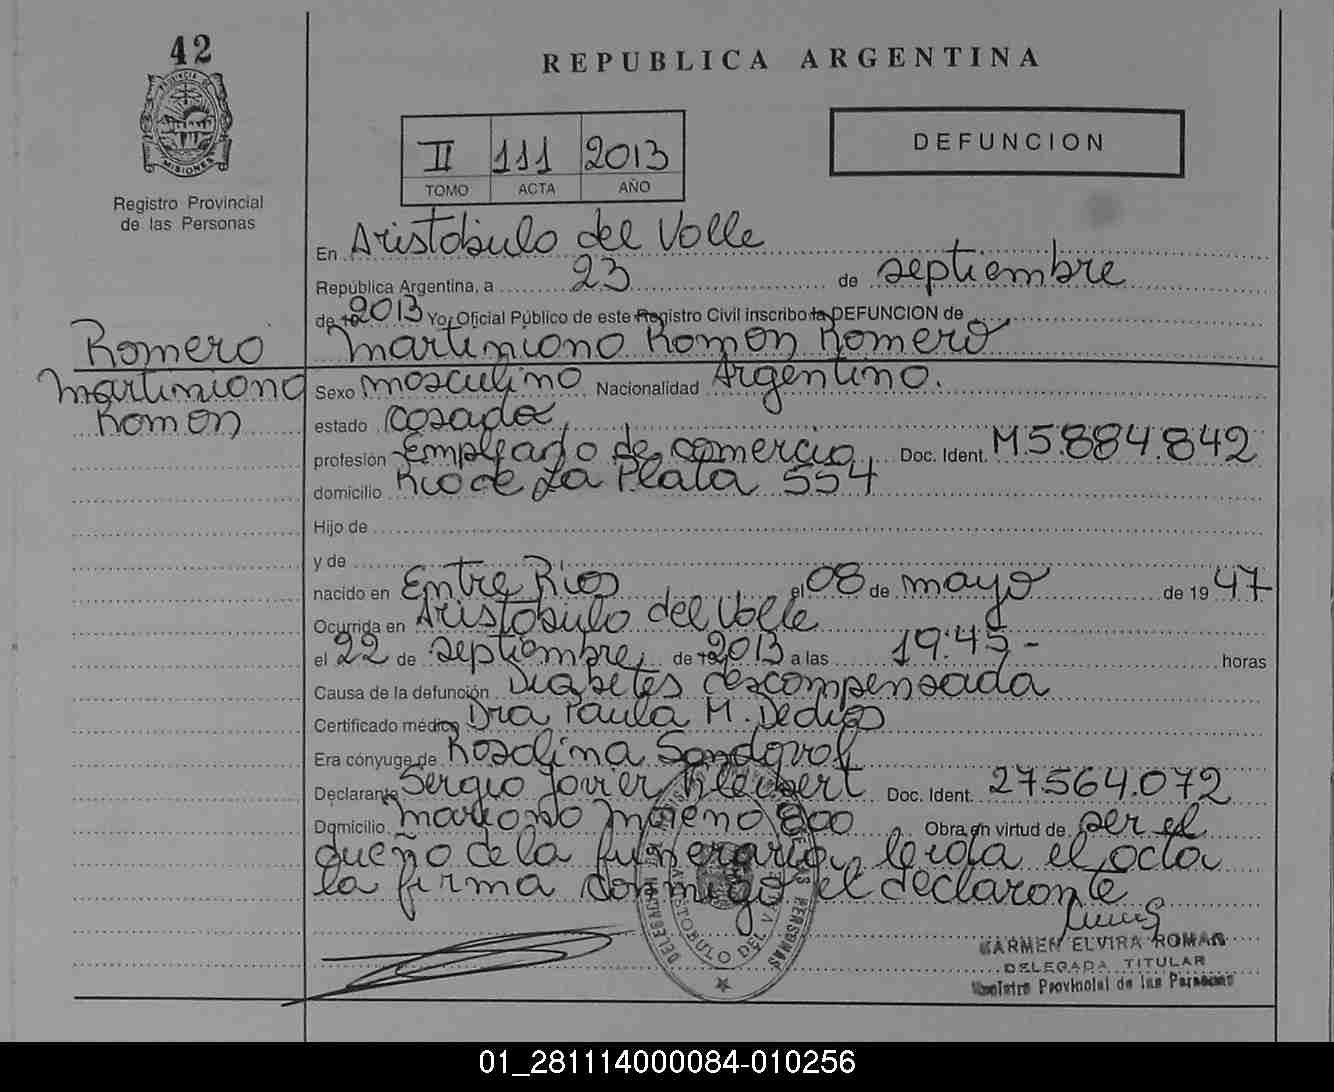 42
REPUBLICA ARGENTINA
PROVINCIA DE
MISIONES
Registro Provincial
de las Personas
II 111 2013
TOMO ACTA AÑO
DEFUNCION
En Aristobulo del Valle
República Argentina, a 23 de septiembre
de 19 2013 Yo, Oficial Público de este Registro Civil inscribo la DEFUNCION de
Romero
Martiniano Ramon
Martiniano Ramon Romero
Sexo masculino Nacionalidad Argentino.
estado casado,
profesión Empleado de comercio Doc. Ident. M5.884.842
domicilio Rio de La Plata 554
Hijo de
y de
nacido en Entre Rios el 08 de mayo de 19 47
Ocurrida en Aristobulo del Valle
el 22 de septiembre, de 19 2013 a las 19:45- horas
Causa de la defunción Diabetes descompensada
Certificado médico Dra Paula M.
Era cónyuge de Rosalina Sandoval
Declarante Sergio Javier Kleibert Doc. Ident. 27.564.072
Domicilio Mariano Moreno 800 Obra en virtud de ser el
dueño de la funeraria, leida el acta
la firma conmigo el declarante
KARMEN ELVIRA ROMAN
DELEGADA TITULAR
Registro Provincial de las Personas
01_281114000084-010256